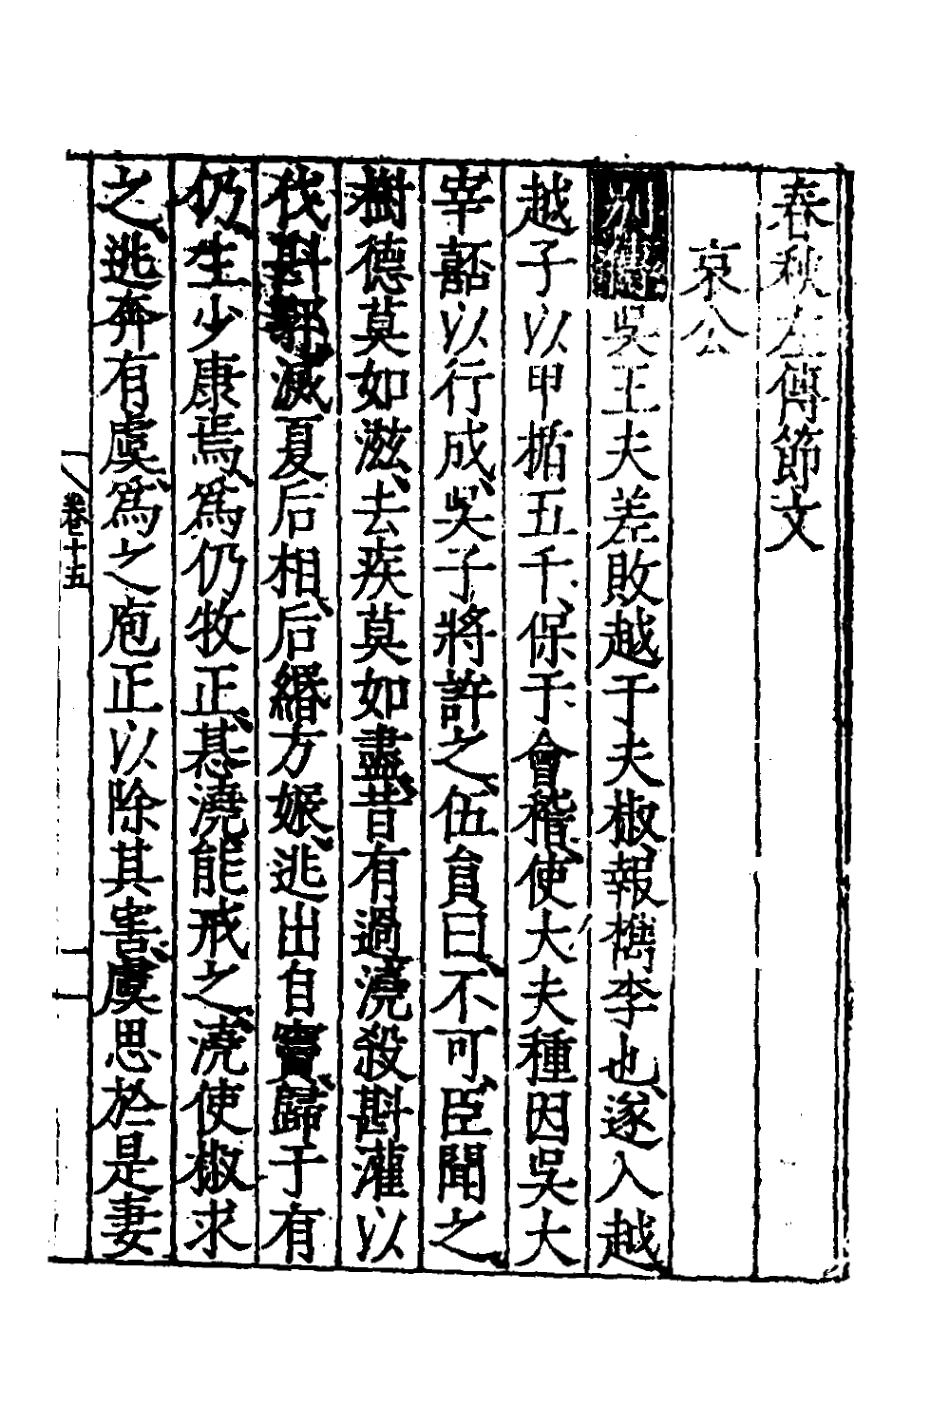 春秋左傳節文
哀公
吳王夫差敗越于夫椒、報檇李也、遂入越、
越子以甲楯五千、保于會稽、使大夫種因吳大
宰嚭以行成、吳子將許之、伍員曰、不可、臣聞之、
樹德莫如滋、去疾莫如盡、昔有過澆殺斟灌以
伐斟鄩、滅夏后相、后緡方娠、逃出自竇、歸于有
仍、生少康焉、爲仍牧正、惎澆能戒之、澆使椒求
之、逃奔有虞、爲之庖正以除其害、虞思於是妻
卷十五